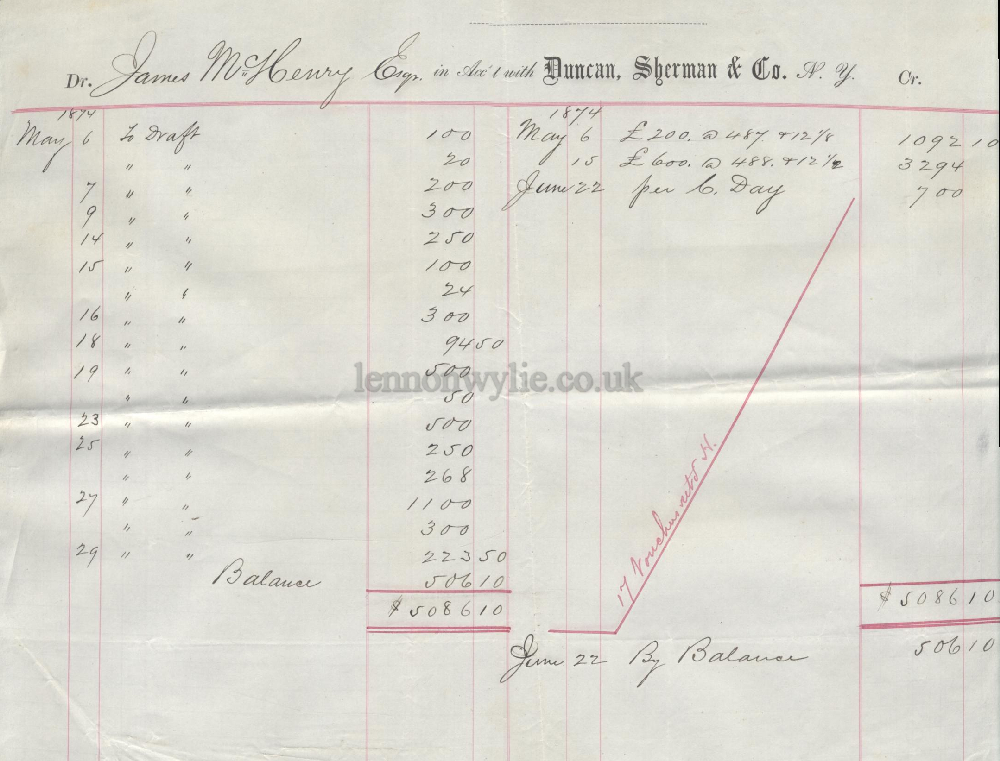 Dr. James McHenry Esqr. in Acc't with Duncan, Sherman & Co. N. Y. Cr.
1874
May 6 To Draft 100
" " 20
7 " " 200
9 " " 300
14 " " 250
15 " " 100
" " 24
16 " " 300
18 " " 94 50
19 " " 500
" " 50
23 " " 500
25 " " 250
" " 268
27 " " 1100
" " 300
29 " " 223 50
Balance 506 10
$ 5086 10
1874
May 6 £200. @ 487. & 12 1/8 1092 10
15 £600. @ 488. & 12 1/2 3294
June 22 per C. Day 700
17 Vouchers retd H.
$ 5086 10
June 22 By Balance 506 10
lennonwylie.co.uk